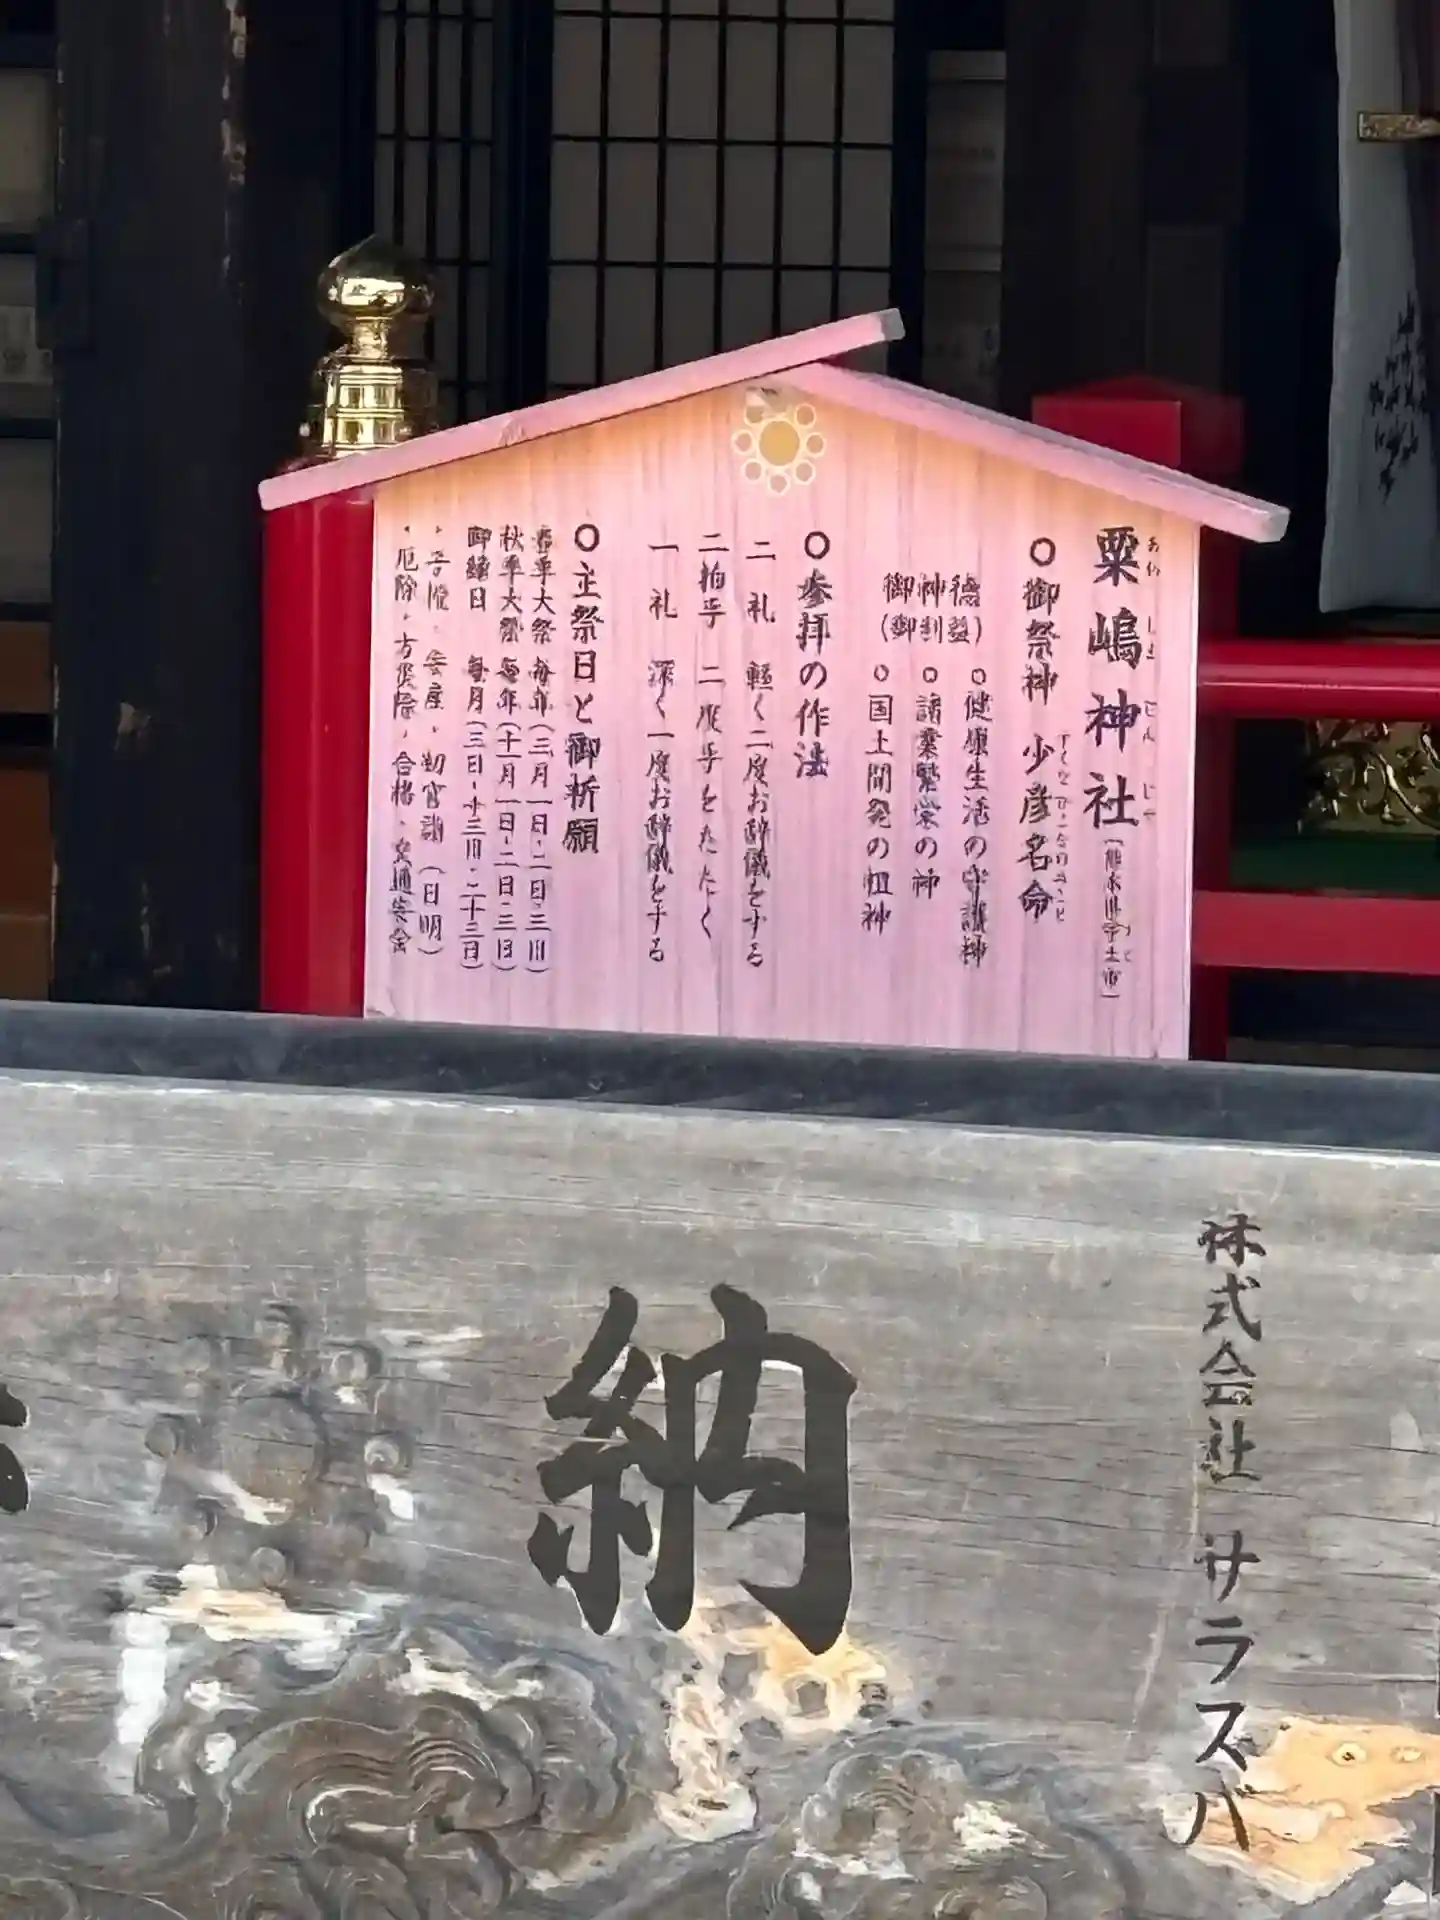 粟嶋神社(熊本県宇土市)
あわしまじんじゃ
うと
○御祭神 少彦名命
すくなひこなのみこと
御神徳
(御利益)
○健康生活の守護神
○諸業繁栄の神
○国土開発の祖神
○参拝の作法
二礼 軽く二度お辞儀をする
二拍手 二度手をたたく
一礼 深く一度お辞儀をする
○主祭日と御祈願
春季大祭 毎年(三月一日・二日・三日)
秋季大祭 毎年(十一月一日・二日・三日)
御縁日 毎月(三日・十三日・二十三日)
・安産・初宮詣
・厄除・方災除・合格・交通安全
納
株式会社 サラスバ